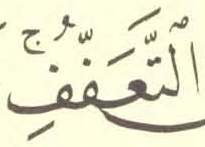 ٱلتَّعَفُّفِ ۚ